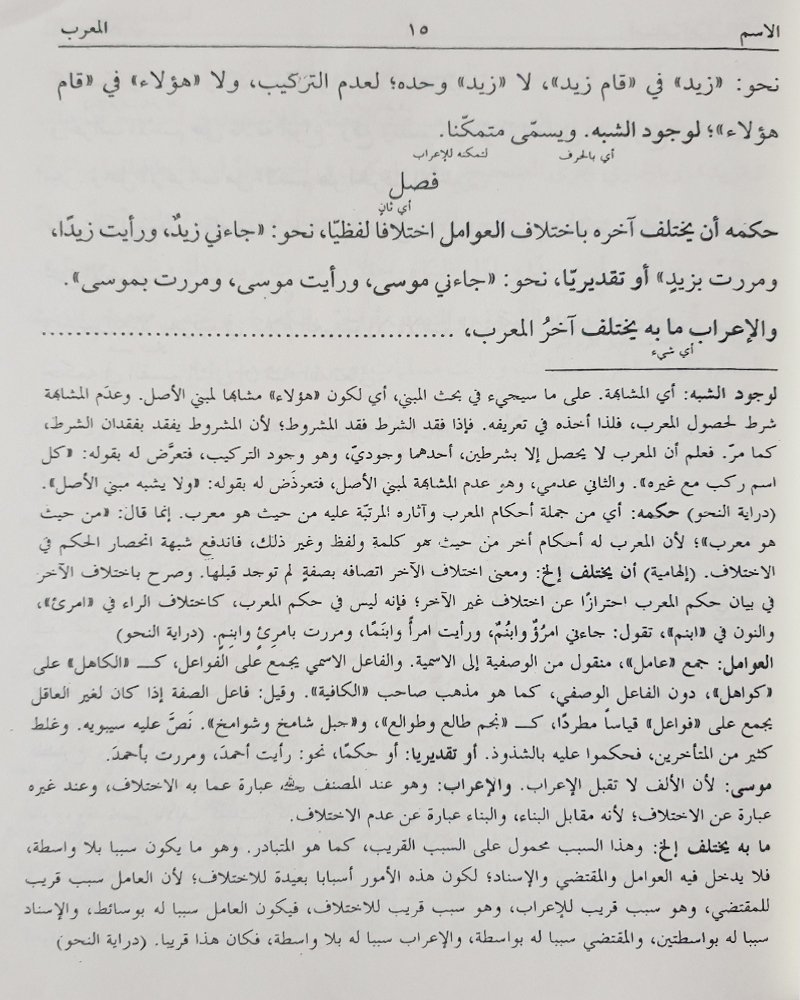 الاسم ١٥ المعرب
نحو: «زيد» في «قام زيد»، لا «زيد» وحده؛ لعدم التركيب، ولا «هؤلاء» في «قام
هؤلاء»؛ لوجود الشبه. ويسمّى متمكّنا.
أي بالحرف لتمكنه للإعراب
فصل
أي ثانٍ
حكمه أن يختلف آخره باختلاف العوامل اختلافا لفظيّا، نحو: «جاءني زيدٌ، ورأيت زيدًا،
ومررت بزيدٍ» أو تقديريّا، نحو: «جاءني موسى، ورأيت موسى، ومررت بموسى».
والإعراب ما به يختلف آخرُ المعرب، ................................................
أي شيء
لوجود الشبه: أي المشابهة. على ما سيجيء في بحث المبني، أي لكون «هؤلاء» مشابها لمبني الأصل. وعدَم المشابهة
شرط لحصول المعرب، فلذا أخذه في تعريفه. فإذا فقد الشرط فقد المشروط؛ لأن المشروط يفقد بفقدان الشرط،
كما مرّ. فعلم أن المعرب لا يحصل إلا بشرطين، أحدهما وجوديّ، وهو وجود التركيب، فتعرَّض له بقوله: «كل
اسم ركب مع غيره». والثاني عدمي، وهو عدم المشابهة لمبني الأصل، فتعرض له بقوله: «ولا يشبه مبني الأصل».
(دراية النحو) حكمه: أي من جملة أحكام المعرب وآثاره المرتبّة عليه من حيث هو معرب. إنما قال: «من حيث
هو معرب»؛ لأن المعرب له أحكام أخر من حيث هو كلمة ولفظ وغير ذلك، فاندفع شبهة انحصار الحكم في
الاختلاف. (إلهامية) أن يختلف إلخ: ومعنى اختلاف الآخر اتصافه بصفةٍ لم توجد قبلها. وصرح باختلاف الآخر
في بيان حكم المعرب احترازًا عن اختلاف غير الآخر؛ فإنه ليس في حكم المعرب، كاختلاف الراء في «امرئ»،
والنون في «ابنم»، تقول: جاءني امرُؤٌ وابنُمٌ، ورأيت امرأً وابنَمًا، ومررت بامرِئٍ وابنِمٍ. (دراية النحو)
العوامل: جمع «عامل»، منقول من الوصفية إلى الاسمية. والفاعل الاسمي يجمع على الفواعل، كـ «الكاهل» على
«كواهل»، دون الفاعل الوصفي، كما هو مذهب صاحب «الكافية». وقيل: فاعل الصفة إذا كان لغير العاقل
يجمع على «فواعل» قياساً مطردًا، كـ «نجم طالع وطوالع»، و«جبل شامخ وشوامخ». نَصَّ عليه سيبويه. وغلط
كثير من المتأخرين، فحكموا عليه بالشذوذ. أو تقديريا: أو حكمًا، نحو: رأيت أحمدَ، ومررت بأحمدَ.
موسى: لأن الألف لا تقبل الإعراب. والإعراب: وهو عند المصنف عبارة عما به الاختلاف، وعند غيره
عبارة عن الاختلاف؛ لأنه مقابل البناء، والبناء عبارة عن عدم الاختلاف.
ما به يختلف إلخ: وهذا السبب محمول على السبب القريب، كما هو المتبادر. وهو ما يكون سببا بلا واسطة،
فلا يدخل فيه العوامل والمقتضي والإسناد؛ لكون هذه الأمور أسبابا بعيدة للاختلاف؛ لأن العامل سبب قريب
للمقتضي، وهو سبب قريب للإعراب، وهو سبب قريب للاختلاف، فيكون العامل سببا له بوسائط، والإسناد
سببا له بواسطتين، والمقتضي سببا له بواسطة، والإعراب سببا له بلا واسطة، فكان هذا قريبا. (دراية النحو)